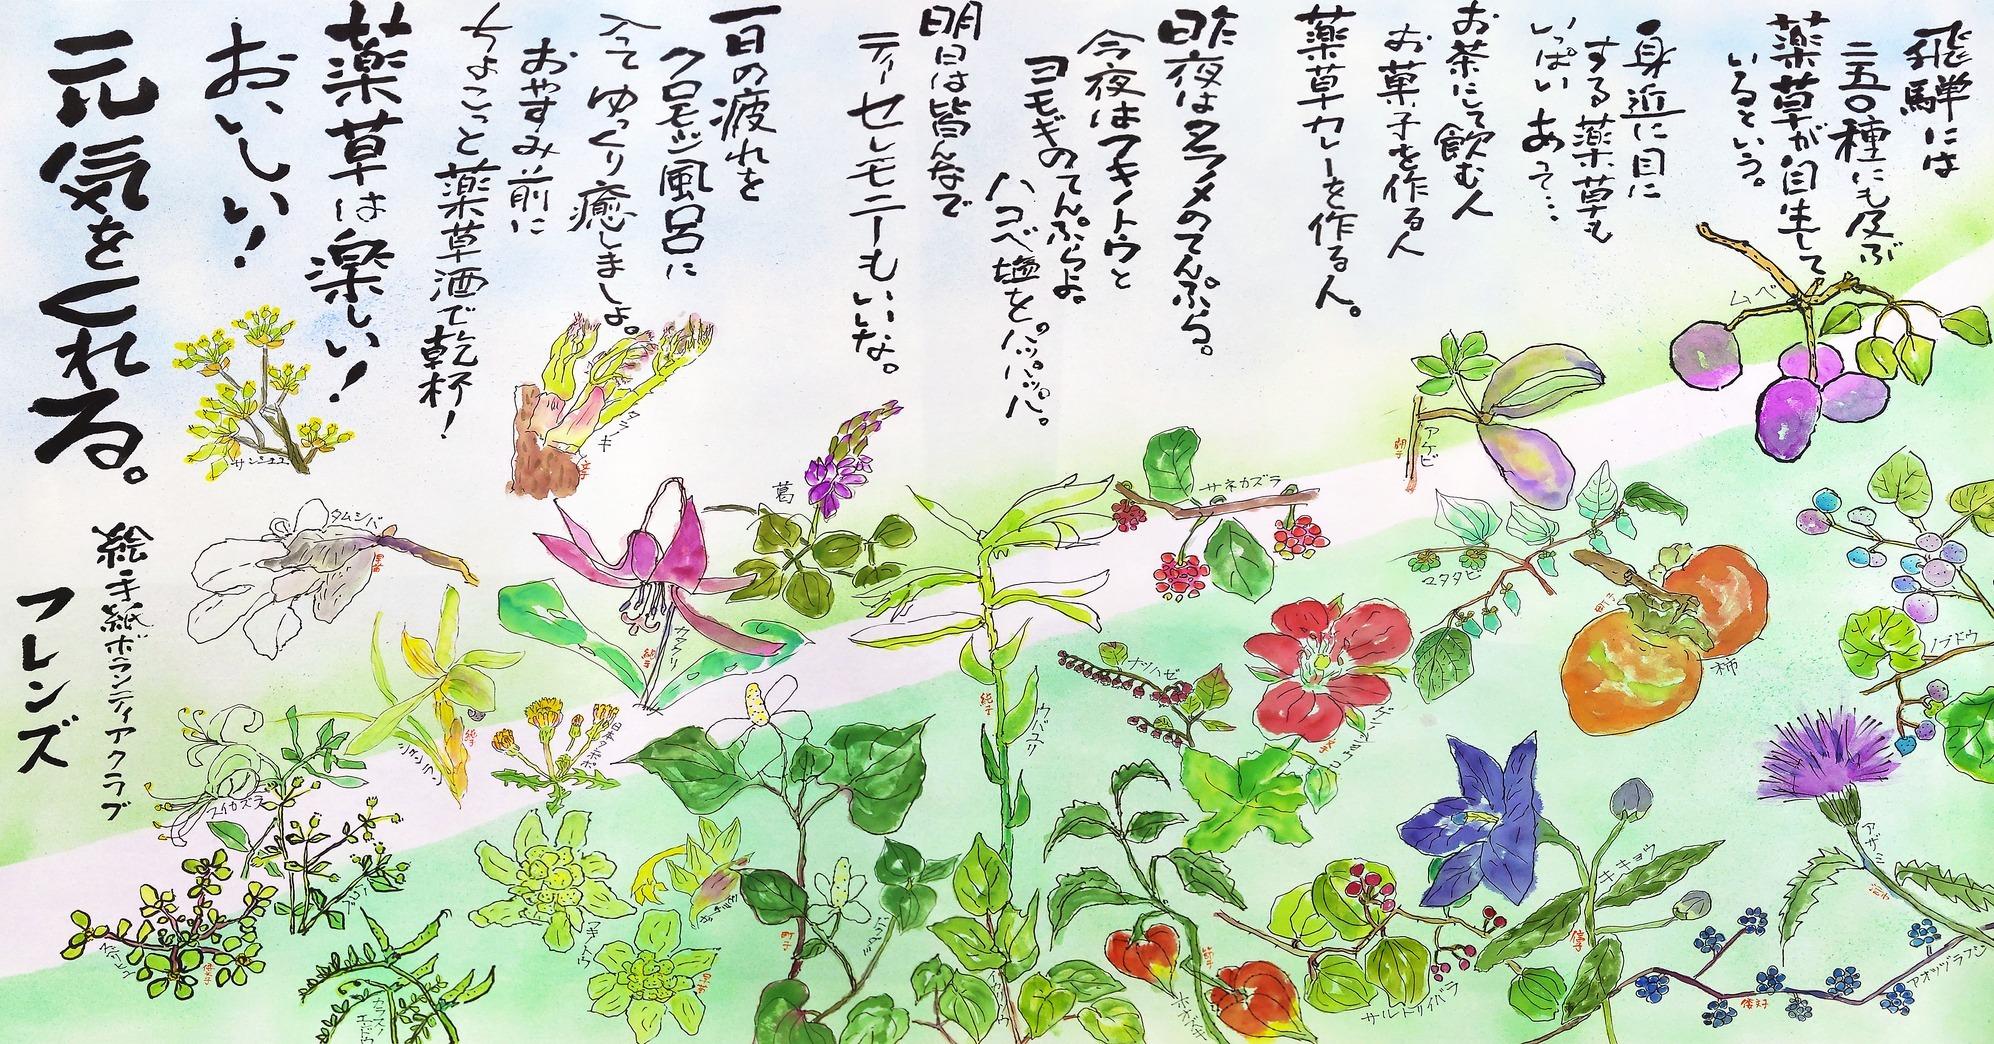 飛騨には
二五〇種にも及ぶ
薬草が自生して
いるという。
身近に目に
する薬草も
いっぱいあって…
お茶にして飲む人
お菓子を作る人
薬草カレーを作る人。
昨夜はタラノメのてんぷら。
今夜はフキノトウと
ヨモギのてんぷらよ。
ハコベ塩をパッパッパ。
明日は皆んなで
ティーセレモニーもいいな。
一日の疲れを
クロモジ風呂に
入てゆっくり癒しましょ。
おやすみ前に
ちょこっと薬草酒で乾杯！
薬草は楽しい！
おいしい！
元気をくれる。
絵手紙ボランティアクラブ
フレンズ
ムベ
アケビ
サネカズラ
マタタビ
柿
ノブドウ
アザミ
アオツヅラフジ
キキョウ
サルトリイバラ
ホオズキ
ナツハゼ
ウバユリ
葛
カタクリ
タラノキ
サンシュユ
タムシバ
シュンラン
日本タンポポ
スイカズラ
フキノトウ
カラスノ
エンドウ